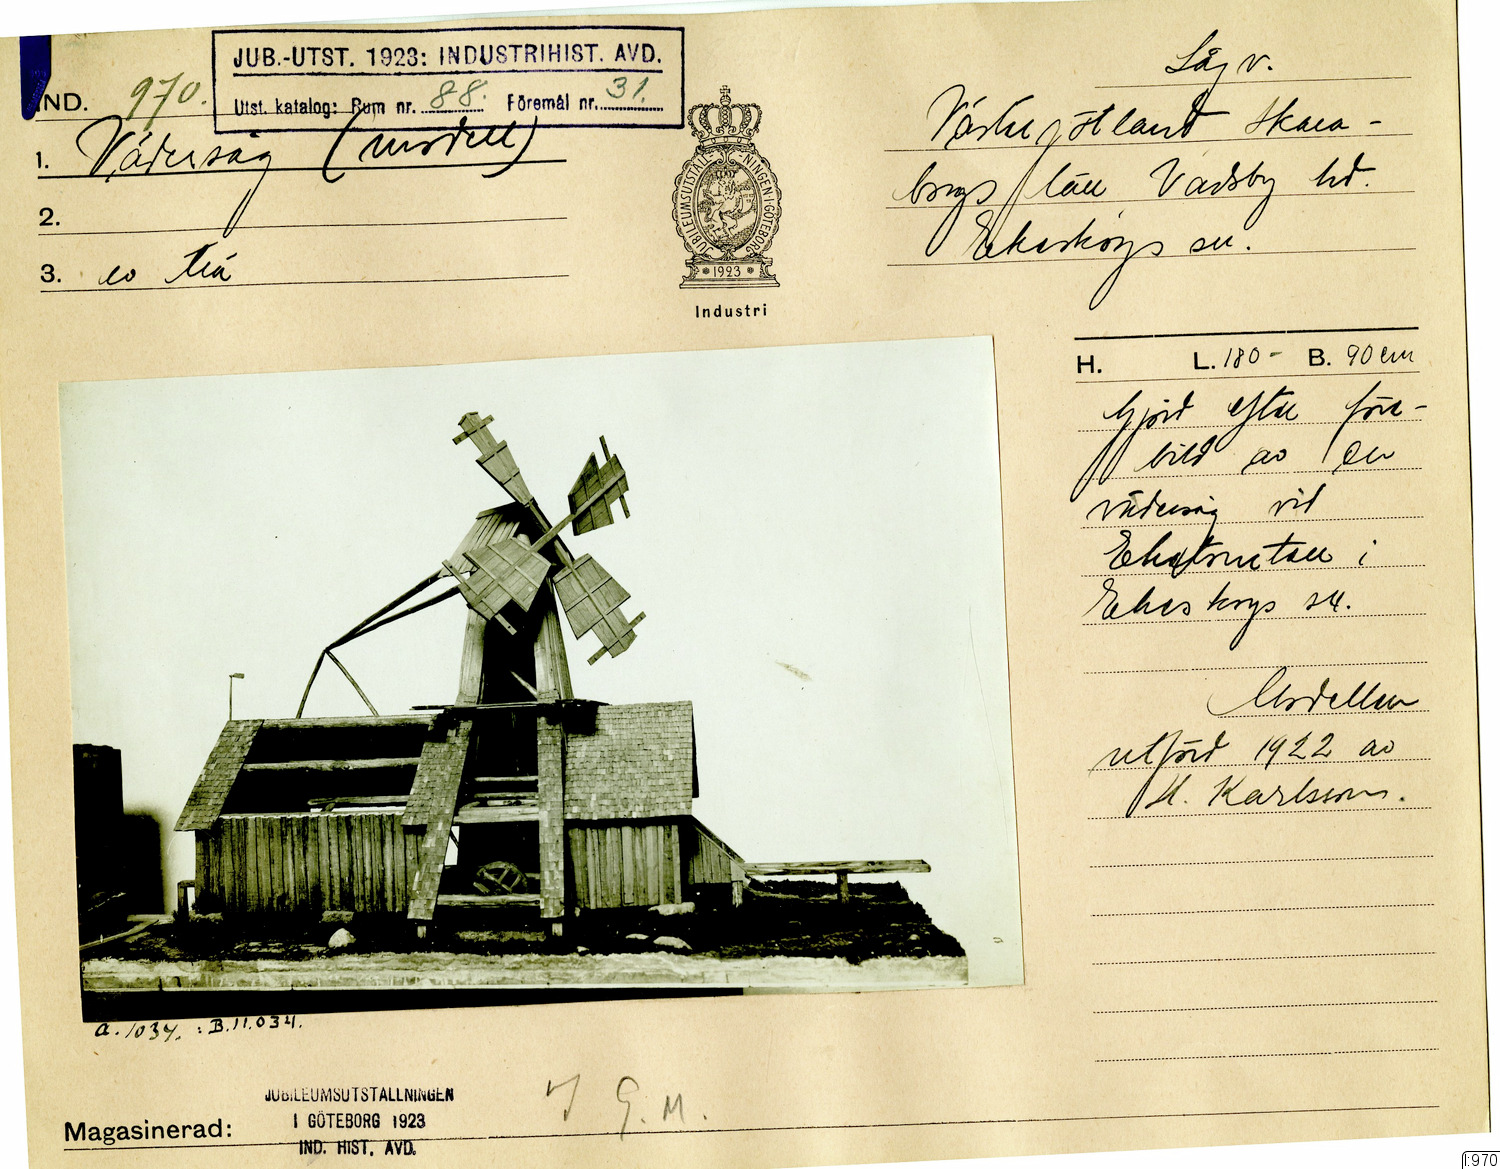 JUB.-UTST. 1923: INDUSTRIHIST. AVD.
Utst. katalog: Rum nr. 88. Föremål nr. 31.
IND. 970.
1. Vädersåg (modell)
2.
3. av trä
JUBILEUMSUTSTÄLLNINGEN I GÖTEBORG
1923
Industri
Sågv.
Västergötland Skara-
borgs län Vadsby hd.
Ekeskogs sn.
H. L. 180- B. 90 cm
Gjord efter före-
bild av en
vädersåg vid
i
Ekeskogs sn.
Modellen
utförd 1922 av
K. Karlsson.
a. 1034. : B.11.034.
Magasinerad:
JUBILEUMSUTSTÄLLNINGEN
I GÖTEBORG 1923
IND. HIST. AVD.
G.M.
I:970